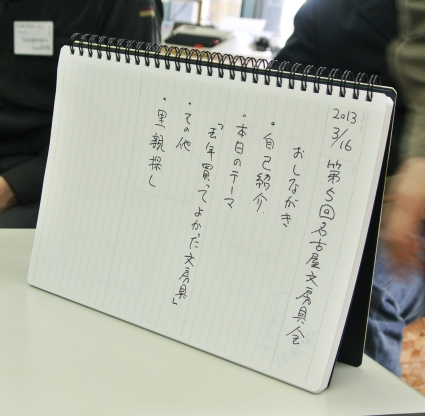 2013
3/16
第5回名古屋文房具会
おしながき
・自己紹介
・本日のテーマ
「去年買ってよかった文房具」
・その他
・里親探し